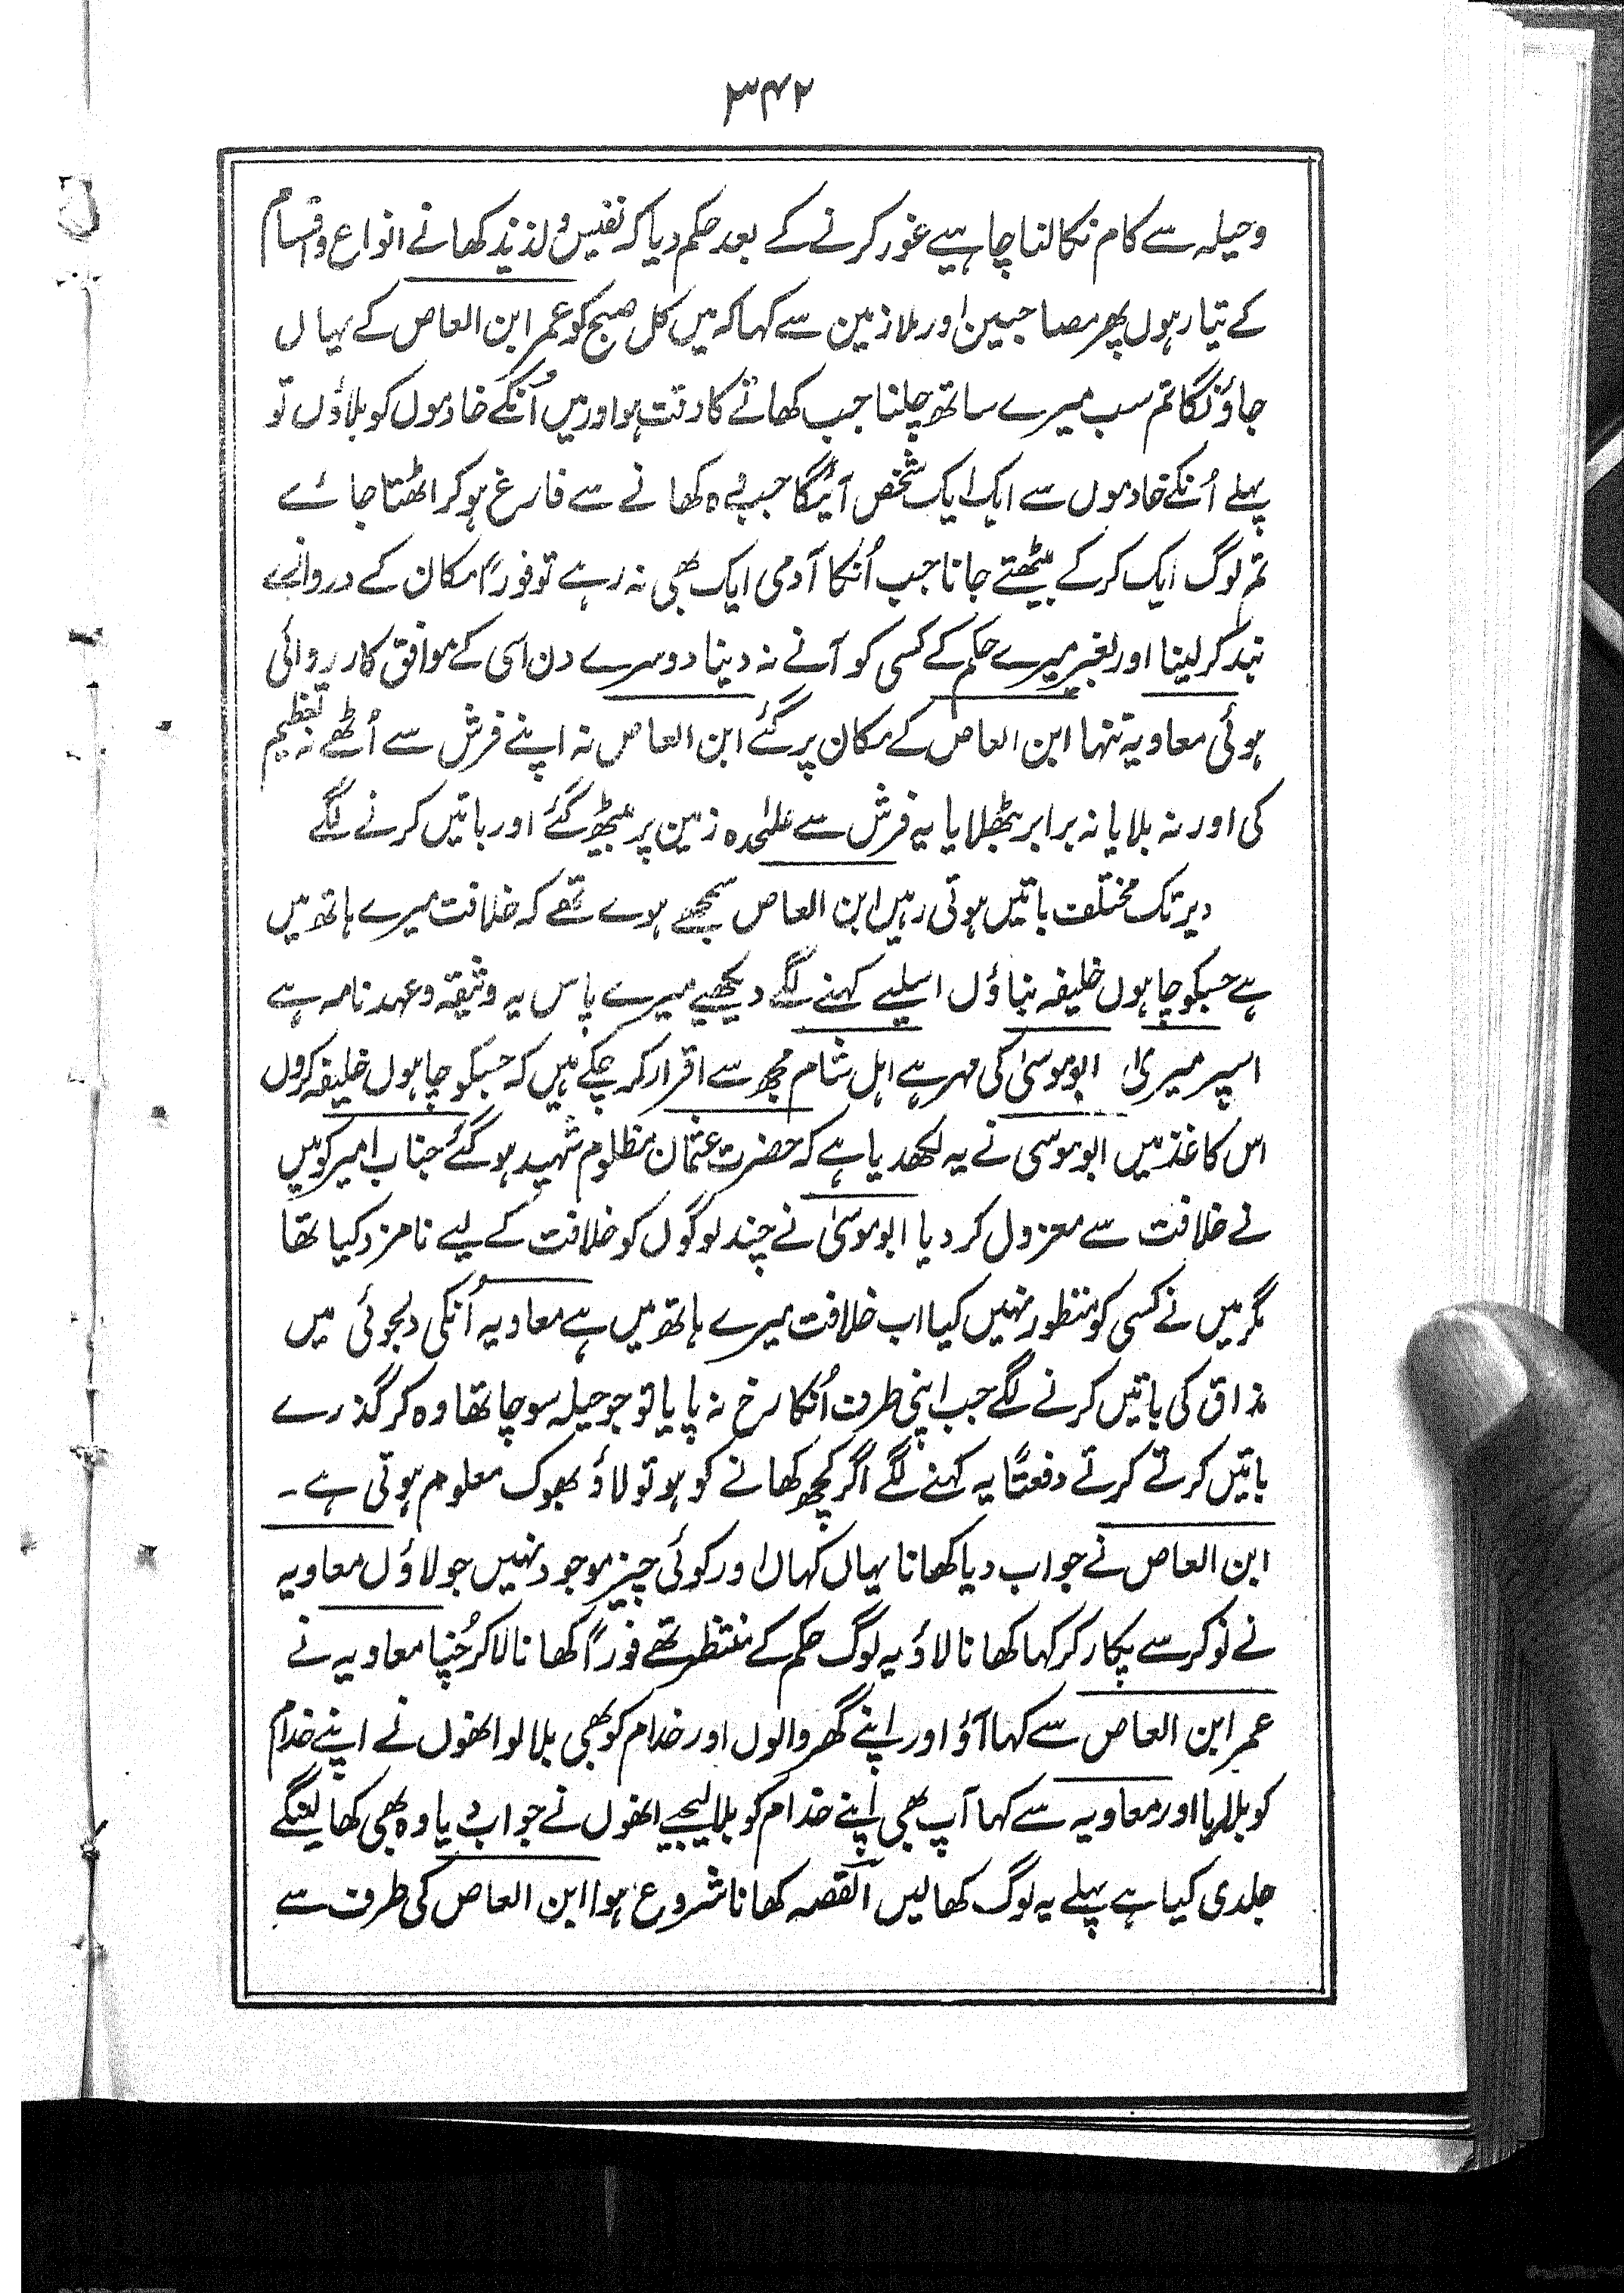 ۳۴۲
وحیلہ سے کام نکالنا چاہیے غور کرنے کے بعد حکم دیا کہ نفیس و لذیذ کھانے انواع و اقسام
کے تیار ہوں پھر مصاحبین اور ملازمین سے کہا کہ میں کل صبح کو عمر ابن العاص کے یہاں
جاؤنگا تم سب میرے ساتھ چلنا جب کھانے کا وقت ہو اور میں اُنکے خادموں کو بلاؤں تو
پہلے اُنکے خادموں سے ایک ایک شخص آئیگا جب وہ کھانے سے فارغ ہو کر اٹھتا جائے
تم لوگ ایک کرکے بیٹھتے جانا جب اُنکا آدمی ایک بھی نہ رہے تو فوراً مکان کے دروازے
بند کر لینا اور بغیر میرے حکم کے کسی کو آنے نہ دینا دوسرے دن اسی کے موافق کارروائی
ہوئی معاویہ تنہا ابن العاص کے مکان پر گئے ابن العاص نہ اپنے فرش سے اُٹھے نہ تعظیم
کی اور نہ بلایا نہ برابر بٹھلایا یہ فرش سے علٰحدہ زمین پر بیٹھ گئے اور باتیں کرنے لگے
دیر تک مختلف باتیں ہوتی رہیں ابن العاص سمجھے ہوے تھے کہ خلافت میرے ہاتھ میں
ہے جسکو چاہوں خلیفہ بناؤں اسلیے کہنے لگے دیکھیے میرے پاس یہ وثیقہ و عہدنامہ ہے
اسپر میری ابوموسیٰ کی مہر ہے اہل شام مجھ سے اقرار کر چکے ہیں کہ جسکو چاہوں خلیفہ کروں
اس کاغذ میں ابوموسی نے یہ لکھدیا ہے کہ حضرت عثمان مظلوم شہید ہو گئے جناب امیر کو میں
نے خلافت سے معزول کر دیا ابوموسیٰ نے چند لوگوں کو خلافت کے لیے نامزد کیا تھا
مگر میں نے کسی کو منظور نہیں کیا اب خلافت میرے ہاتھ میں ہے معاویہ اُنکی دلجوئی میں
مذاق کی باتیں کرنے لگے جب اپنی طرف اُنکا رخ نہ پایا تو جو حیلہ سوچا تھا وہ کر گذرے
باتیں کرتے کرتے دفعتًا یہ کہنے لگے اگر کچھ کھانے کو ہو تو لاؤ بھوک معلوم ہوتی ہے۔
ابن العاص نے جواب دیا کھانا یہاں کہاں اور کوئی چیز موجود نہیں جو لاؤں معاویہ
نے نوکر سے پکار کر کہا کھانا لاؤ یہ لوگ حکم کے منتظر تھے فوراً کھانا لا کر چُنیا معاویہ نے
عمر ابن العاص سے کہا آؤ اور اپنے گھر والوں اور خدام کو بھی بلا لو انھوں نے اپنے خدام
کو بلالیا اور معاویہ سے کہا آپ بھی اپنے خدام کو بلا لیجیے انھوں نے جواب دیا وہ بھی کھا لینگے
جلدی کیا ہے پہلے یہ لوگ کھا لیں القصہ کھانا شروع ہوا ابن العاص کی طرف سے